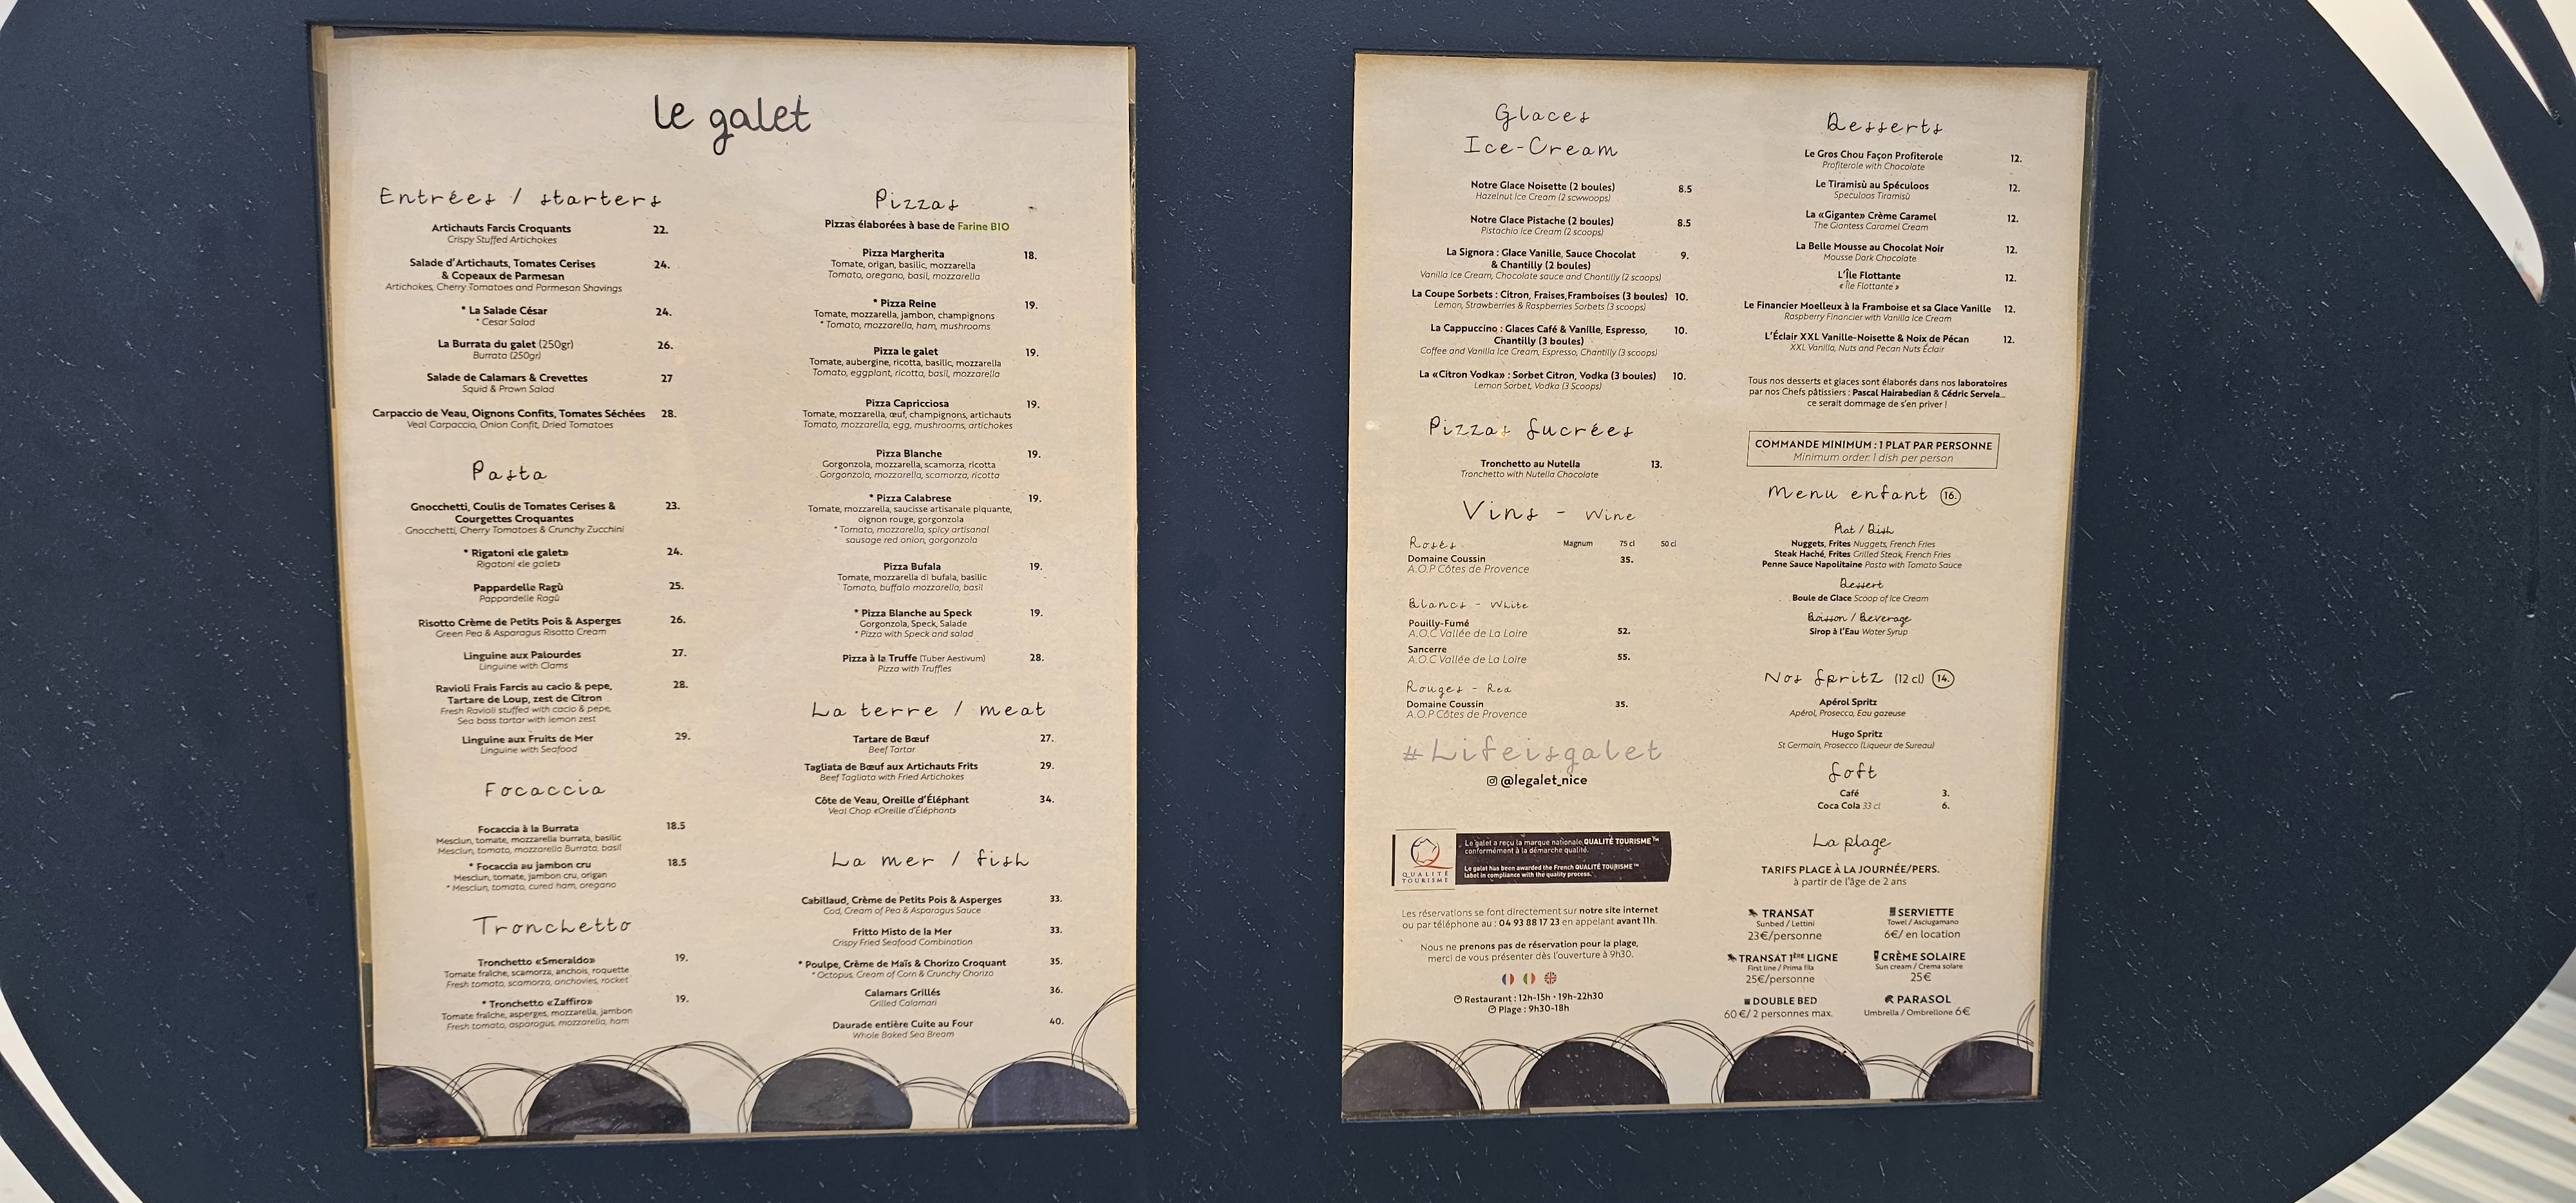 le galet
Entrées / starters
Artichauts Farcis Croquants 22.
Crispy Stuffed Artichokes
Salade d'Artichauts, Tomates Cerises 24.
& Copeaux de Parmesan
Artichokes, Cherry Tomatoes and Parmesan Shavings
* La Salade César 24.
* Cesar Salad
La Burrata du galet (250gr) 26.
Burrata (250gr)
Salade de Calamars & Crevettes 27
Squid & Prawn Salad
Carpaccio de Veau, Oignons Confits, Tomates Séchées 28.
Veal Carpaccio, Onion Confit, Dried Tomatoes
Pasta
Gnocchetti, Coulis de Tomates Cerises & 23.
Courgettes Croquantes
Gnocchetti, Cherry Tomatoes & Crunchy Zucchini
* Rigatoni «le galet» 24.
Rigatoni «le galet»
Pappardelle Ragù 25.
Pappardelle Ragù
Risotto Crème de Petits Pois & Asperges 26.
Green Pea & Asparagus Risotto Cream
Linguine aux Palourdes 27.
Linguine with Clams
Ravioli Frais Farcis au cacio & pepe, 28.
Tartare de Loup, zest de Citron
Fresh Ravioli stuffed with cacio & pepe,
Sea bass tartar with lemon zest
Linguine aux Fruits de Mer 29.
Linguine with Seafood
Focaccia
Focaccia à la Burrata 18.5
Mesclun, tomate, mozzarella burrata, basilic
Mesclun, tomato, mozzarella Burrata, basil
* Focaccia au jambon cru 18.5
Mesclun, tomate, jambon cru, origan
* Mesclun, tomato, cured ham, oregano
Tronchetto
Tronchetto «Smeraldo» 19.
Tomate fraîche, scamorza, anchois, roquette
Fresh tomato, scamorza, anchovies, rocket
* Tronchetto «Zaffiro» 19.
Tomate fraîche, asperges, mozzarella, jambon
Fresh tomato, asparagus, mozzarella, ham
Pizzas
Pizzas élaborées à base de Farine BIO
Pizza Margherita 18.
Tomate, origan, basilic, mozzarella
Tomato, oregano, basil, mozzarella
* Pizza Reine 19.
Tomate, mozzarella, jambon, champignons
* Tomato, mozzarella, ham, mushrooms
Pizza le galet 19.
Tomate, aubergine, ricotta, basilic, mozzarella
Tomato, eggplant, ricotta, basil, mozzarella
Pizza Capricciosa 19.
Tomate, mozzarella, œuf, champignons, artichauts
Tomato, mozzarella, egg, mushrooms, artichokes
Pizza Blanche 19.
Gorgonzola, mozzarella, scamorza, ricotta
Gorgonzola, mozzarella, scamorza, ricotta
* Pizza Calabrese 19.
Tomate, mozzarella, saucisse artisanale piquante,
oignon rouge, gorgonzola
* Tomato, mozzarella, spicy artisanal
sausage red onion, gorgonzola
Pizza Bufala 19.
Tomate, mozzarella di bufala, basilic
Tomato, buffalo mozzarella, basil
* Pizza Blanche au Speck 19.
Gorgonzola, Speck, Salade
* Pizza with Speck and salad
Pizza à la Truffe (Tuber Aestivum) 28.
Pizza with Truffles
La terre / meat
Tartare de Bœuf 27.
Beef Tartar
Tagliata de Bœuf aux Artichauts Frits 29.
Beef Tagliata with Fried Artichokes
Côte de Veau, Oreille d'Éléphant 34.
Veal Chop «Oreille d'Éléphant»
La mer / fish
Cabillaud, Crème de Petits Pois & Asperges 33.
Cod, Cream of Pea & Asparagus Sauce
Fritto Misto de la Mer 33.
Crispy Fried Seafood Combination
* Poulpe, Crème de Maïs & Chorizo Croquant 35.
* Octopus, Cream of Corn & Crunchy Chorizo
Calamars Grillés 36.
Grilled Calamari
Daurade entière Cuite au Four 40.
Whole Baked Sea Bream
Glaces
Ice-Cream
Notre Glace Noisette (2 boules) 8.5
Hazelnut Ice Cream (2 scwwoops)
Notre Glace Pistache (2 boules) 8.5
Pistachio Ice Cream (2 scoops)
La Signora : Glace Vanille, Sauce Chocolat 9.
& Chantilly (2 boules)
Vanilla Ice Cream, Chocolate sauce and Chantilly (2 scoops)
La Coupe Sorbets : Citron, Fraises,Framboises (3 boules) 10.
Lemon, Strawberries & Raspberries Sorbets (3 scoops)
La Cappuccino : Glaces Café & Vanille, Espresso, 10.
Chantilly (3 boules)
Coffee and Vanilla Ice Cream, Espresso, Chantilly (3 scoops)
La «Citron Vodka» : Sorbet Citron, Vodka (3 boules) 10.
Lemon Sorbet, Vodka (3 Scoops)
Pizzas Sucrées
Tronchetto au Nutella 13.
Tronchetto with Nutella Chocolate
Vins - Wine
Rosés Magnum 75 cl 50 cl
Domaine Coussin 35.
A.O.P Côtes de Provence
Blancs - White
Pouilly-Fumé 52.
A.O.C Vallée de La Loire
Sancerre 55.
A.O.C Vallée de La Loire
Rouges - Red
Domaine Coussin 35.
A.O.P Côtes de Provence
#Lifeisgalet
@legalet_nice
QUALITÉ
TOURISME
Le galet a reçu la marque nationale QUALITÉ TOURISME™
conformément à la démarche qualité.
Le galet has been awarded the French QUALITÉ TOURISME™
label in compliance with the quality process.
Les réservations se font directement sur notre site internet
ou par téléphone au : 04 93 88 17 23 en appelant avant 11h.
Nous ne prenons pas de réservation pour la plage,
merci de vous présenter dès l'ouverture à 9h30.
Restaurant : 12h-15h • 19h-22h30
Plage : 9h30-18h
Desserts
Le Gros Chou Façon Profiterole 12.
Profiterole with Chocolate
Le Tiramisù au Spéculoos 12.
Speculoos Tiramisù
La «Gigante» Crème Caramel 12.
The Giantess Caramel Cream
La Belle Mousse au Chocolat Noir 12.
Mousse Dark Chocolate
L'Île Flottante 12.
« Île Flottante »
Le Financier Moelleux à la Framboise et sa Glace Vanille 12.
Raspberry Financier with Vanilla Ice Cream
L'Éclair XXL Vanille-Noisette & Noix de Pécan 12.
XXL Vanilla, Nuts and Pecan Nuts Éclair
Tous nos desserts et glaces sont élaborés dans nos laboratoires
par nos Chefs pâtissiers : Pascal Hairabedian & Cédric Servela...
ce serait dommage de s'en priver !
COMMANDE MINIMUM : 1 PLAT PAR PERSONNE
Minimum order: 1 dish per person
Menu enfant 16.
Plat / Dish
Nuggets, Frites Nuggets, French Fries
Steak Haché, Frites Grilled Steak, French Fries
Penne Sauce Napolitaine Pasta with Tomato Sauce
Dessert
Boule de Glace Scoop of Ice Cream
Boisson / Beverage
Sirop à l'Eau Water Syrup
Nos Spritz (12 cl) 14.
Apérol Spritz
Apérol, Prosecco, Eau gazeuse
Hugo Spritz
St Germain, Prosecco (Liqueur de Sureau)
Soft
Café 3.
Coca Cola 33 cl 6.
La plage
TARIFS PLAGE À LA JOURNÉE/PERS.
à partir de l'âge de 2 ans
TRANSAT
Sunbed / Lettini
23€/personne
SERVIETTE
Towel / Asciugamano
6€/ en location
TRANSAT 1ÈRE LIGNE
First line / Prima fila
25€/personne
CRÈME SOLAIRE
Sun cream / Crema solare
25€
DOUBLE BED
60€/ 2 personnes max.
PARASOL
Umbrella / Ombrellone 6€